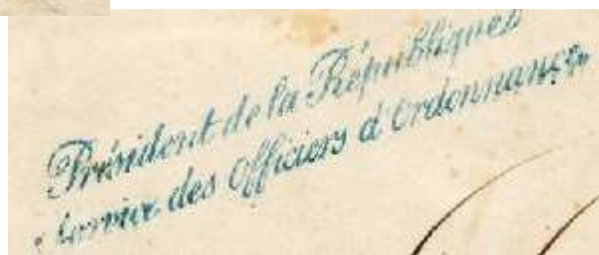 Président de la République
Service des Officiers d'Ordonnance